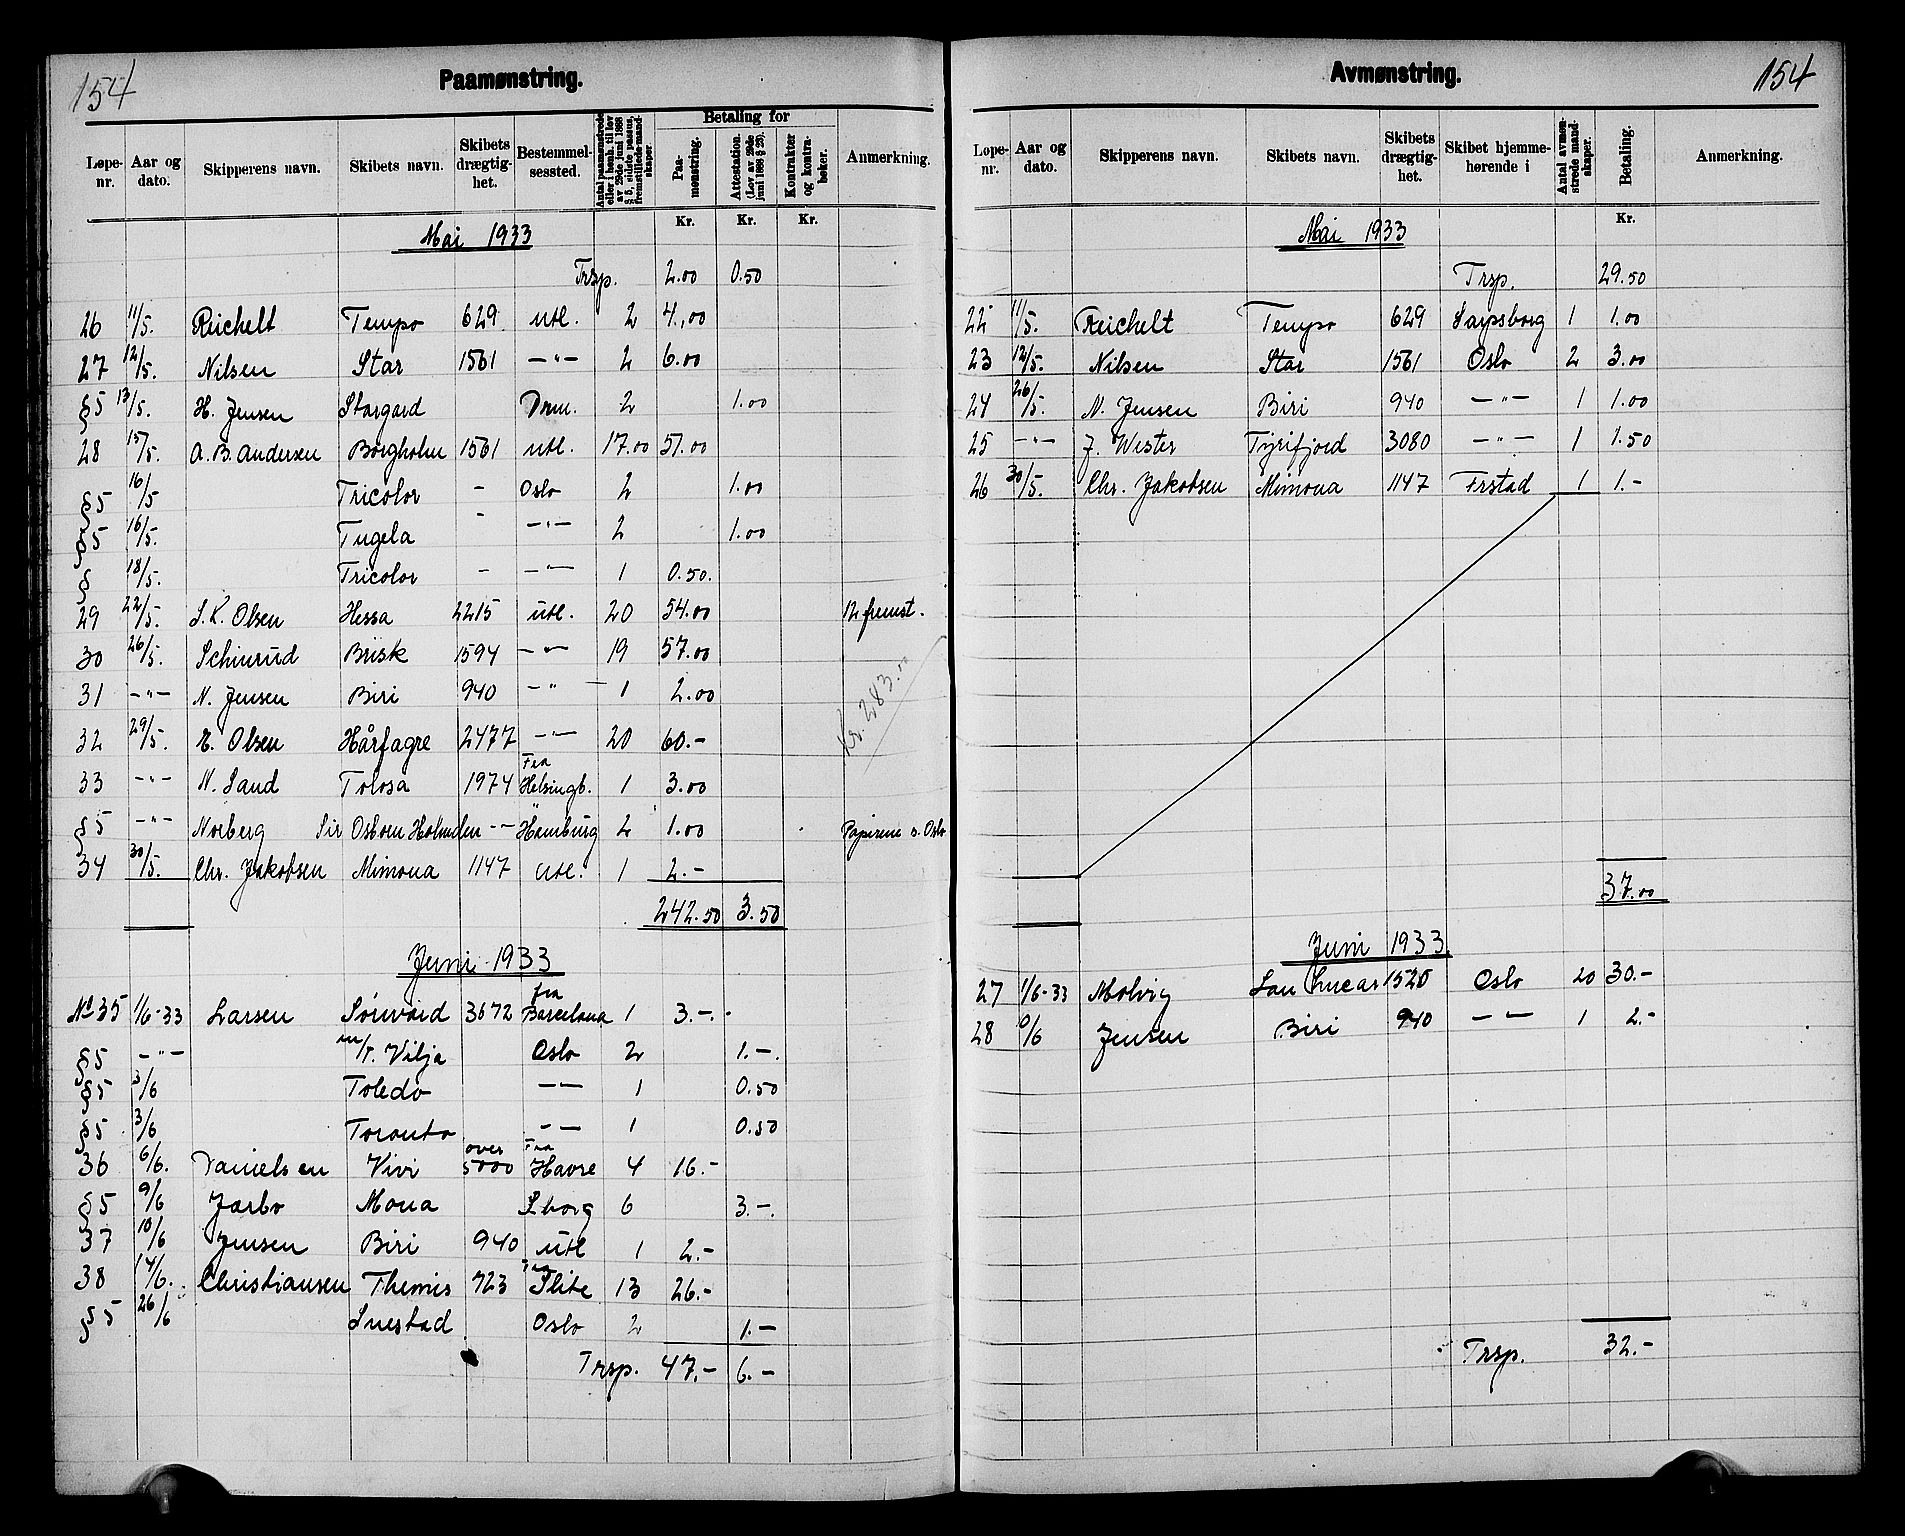 154
Paamønstring.
Løpe-nr. Aar og dato. Skipperens navn. Skibets navn. Skibets drægtig-het. Bestemmel-sessted. Antal paamønstrede eller i henh. til lov av 29de juni 1888 § 5, sidste passus, fremstillede mand-skaper. Betaling for Paa-mønstring. Attestation. (Lov av 29de juni 1888 § 23). Kontrakter og kontra-bøker. Anmerkning.
Kr. Kr. Kr.
Mai 1933
Trsp. 2.00 0.50
26 11/5. Reichelt Tempo 629 utl. 2 4.,00
27 12/5. Nilsen Star 1561 —"— 2 6.00
§5 13/5. H. Jensen Stargard Drm. 2 1.00
28 15/5. A. B. Andersen Borgholm 1561 utl. 17.00 51.00
§5 16/5 Tricolor - Oslo 2 1.00
§5 16/5. Tugela - —"— 2 1.00
§ 18/5. Tricolor - —"— 1 0.50.
29 22/5. S. K. Olsen Hessa 2215 utl. 20 54.00 12 fremst.
30 26/5. Schinrud Brisk 1594 —"— 19 57.00
31 —"— N. Jensen Biri 940 —"— 1 2.00
32 29/5. E. Olsen Hårfagre 2477 —"— 20 60.-
33 —"— N. Sand Tolosa 1974 Fra Helsingb. 1 3.00
§5 —"— Norberg Sir Osborn Holmden -- Hamburg 2 1.00 Papirene s. Oslo
34 30/5. Chr. Jakobsen Mimona 1147 utl. 1 2.-
Kr. 283.00
242.50 3.50
Juni 1933
No 35 1/6-33 Larsen Sørvard 3672 fra Barcelona 1 3.-.
§5 —"— m/t. Vilja Oslo 2 1.-.
§5 3/6 Toledo —"— 1 0.50
§5 3/6 Toronto —"— 1 0.50
36 6/6. Danielsen Vivi over 5000 Fra Havre 4 16.-
§5 9/6 Jarbo Mona Sborg 6 3.-.
37 10/6 Jensen Biri 940 utl 1 2.-
38 14/6. Christiansen Themis 723 Fra Slite 13 26.-
§5 26/6 Snestad Oslo 2 1.-
Trsp. 47.- 6.-
154
Avmønstring.
Løpe-nr. Aar og dato. Skipperens navn. Skibets navn. Skibets drægtig-het. Skibet hjemme-hørende i Antal avmøn-strede mand-skaper. Betaling. Anmerkning.
Kr.
Mai 1933
Trsp. 29.50
22 11/5. Reichelt Tempo 629 Sarpsborg 1 1.00
23 12/5. Nilsen Star 1561 Oslo 2 3.00
24 26/5. N. Jensen Biri 940 —"— 1 1.00
25 —"— J. Wester Tyrifjord 3080 —"— 1 1.50
26 30/5. Chr. Jakobsen Mimona 1147 Frstad 1 1.-
37.00
Juni 1933.
27 1/6-33 Molvig San Lucar 1520 Oslo 20 30.-
28 /6 Jensen Biri 940 —"— 1 2.-
Trsp. 32.-